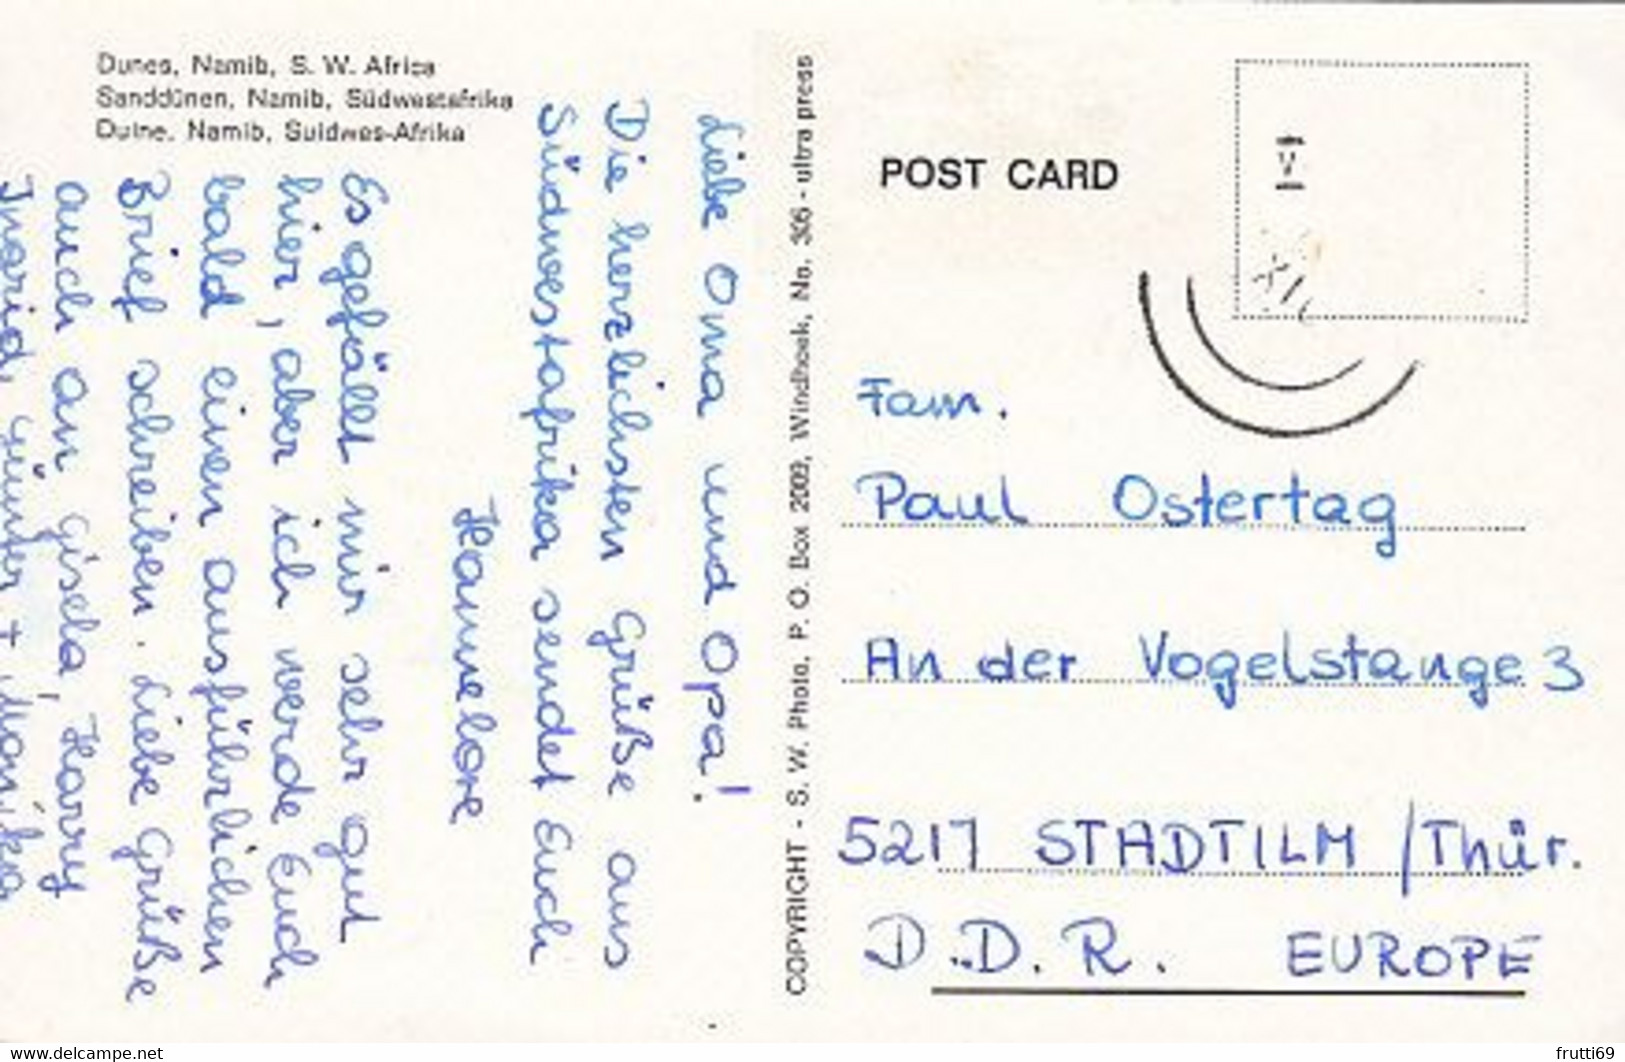 Dunes, Namib, S. W. Africa
Sanddünen, Namib, Südwestafrika
Duine, Namib, Suidwes-Afrika
Liebe Oma und Opa!
Die herzlichsten Grüße aus
Südwestafrika sendet Euch
Hannelore
Es gefällt mir sehr gut
hier, aber ich werde Euch
bald einen ausführlichen
Brief schreiben. Liebe Grüße
auch an Gisela, Harry
Ingrid, Günter + Monika
COPYRIGHT - S. W. Photo, P. O. Box 2009, Windhoek, No. 305 - ultra press
POST CARD
V
XII
Fam.
Paul Ostertag
An der Vogelstange 3
5217 STADTILM / Thür.
D.D.R. EUROPE
delcampe.net
frutti69